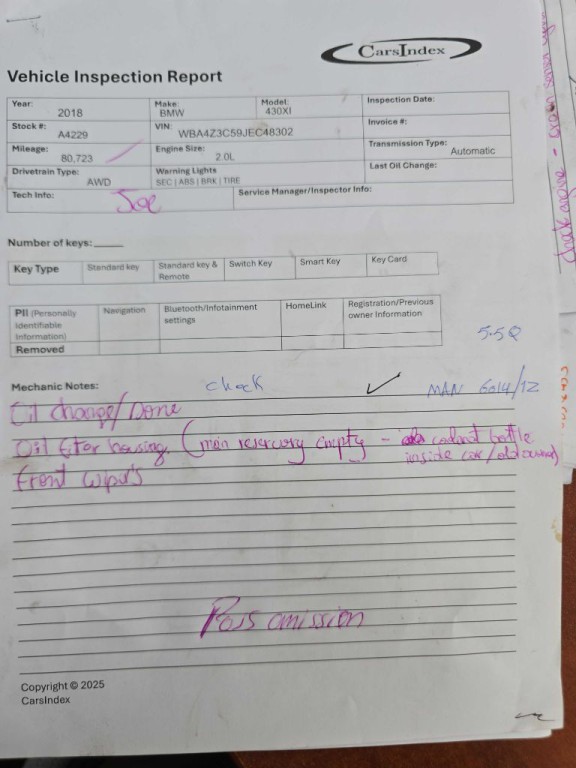 CarsIndex
Vehicle Inspection Report
Year: 2018 Make: BMW Model: 430XI Inspection Date:
Stock #: A4229 VIN: WBA4Z3C59JEC48302 Invoice #:
Mileage: 80,723 Engine Size: 2.0L Transmission Type: Automatic
Drivetrain Type: AWD Warning Lights SEC | ABS | BRK | TIRE Last Oil Change:
Tech Info: Joe Service Manager/Inspector Info:
Number of keys:
Key Type Standard key Standard key & Remote Switch Key Smart Key Key Card
PII (Personally Identifiable Information) Navigation Bluetooth/Infotainment settings HomeLink Registration/Previous owner Information
Removed
5.5Q
Mechanic Notes: check ✓ MAN 6014/1Z
Oil change/Done
Oil filter housing. (main reservory empty - coolant bottle
inside car/
front wiper's
Pass omission
Copyright © 2025
CarsIndex
check engine -